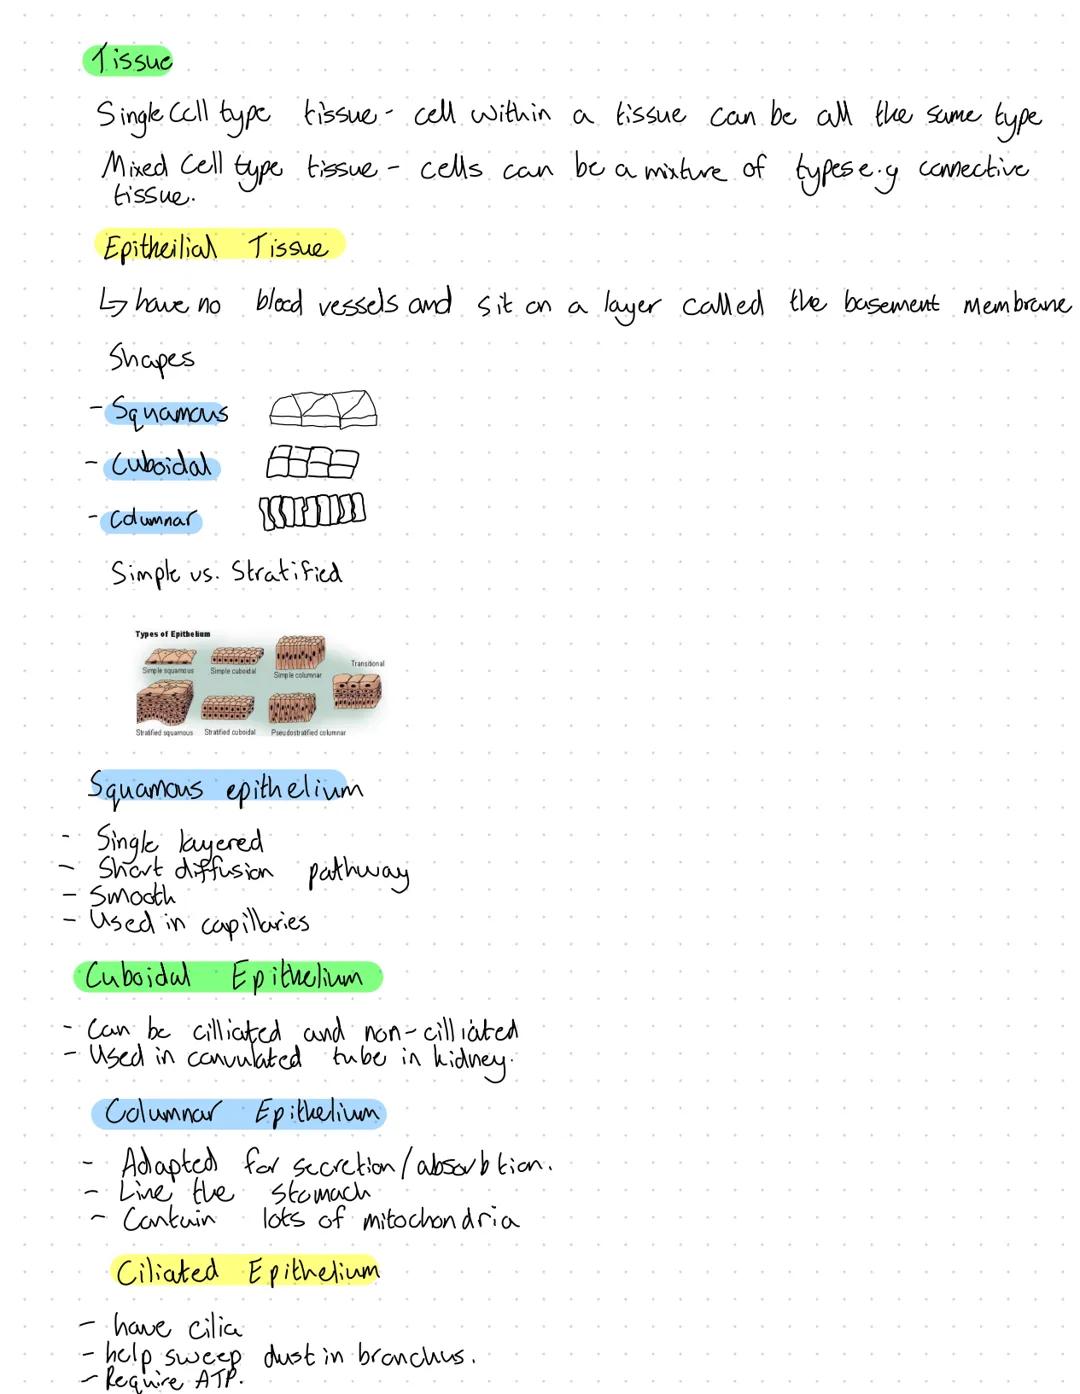 Tissue
Single Cell type tissue - cell within a tissue can be all the same type
Mixed Cell type tissue - cells can be a mixture of types e.g connective
tissue.
Epitheilial Tissue
↳ have no blood vessels and sit on a layer called the basement membrane
Shapes
- Squamous
- Cuboidal
- Columnar
Simple vs. Stratified
Types of Epithelium
Simple squamous Simple cuboidal Simple columnar Transitional
Stratified squamous Stratified cuboidal Pseudostratified columnar
Squamous epithelium
- Single layered
- Short diffusion pathway
- Smooth
- Used in capillaries
Cuboidal Epithelium
- Can be cilliated and non-cilliated
- Used in convulated tube in kidney.
Columnar Epithelium
- Adapted for secretion/absorbtion.
- Line the stomach
- Contain lots of mitochondria
Ciliated Epithelium
- have cilia
- help sweep dust in bronchus.
- Require ATP.